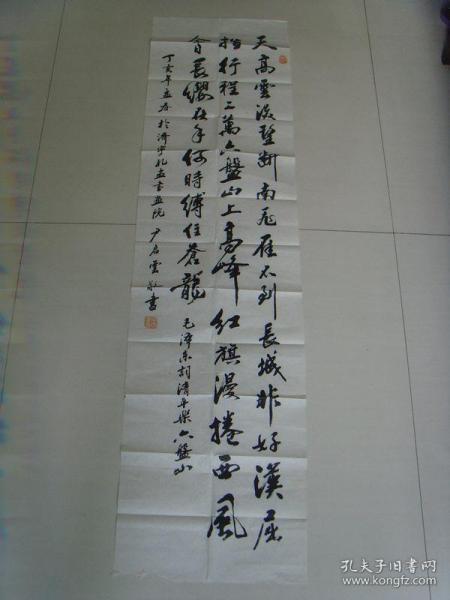 天高雲淡望斷南飛雁不到長城非好漢屈
指行程二萬六盤山上高峰紅旗漫捲西風
今日長纓在手何時縛住蒼龍 毛澤東詞清平樂六盤山
丁亥年孟春於濟寧孔孟書畫院 尹名雲敬書
孔夫子旧书网
www.kongfz.com